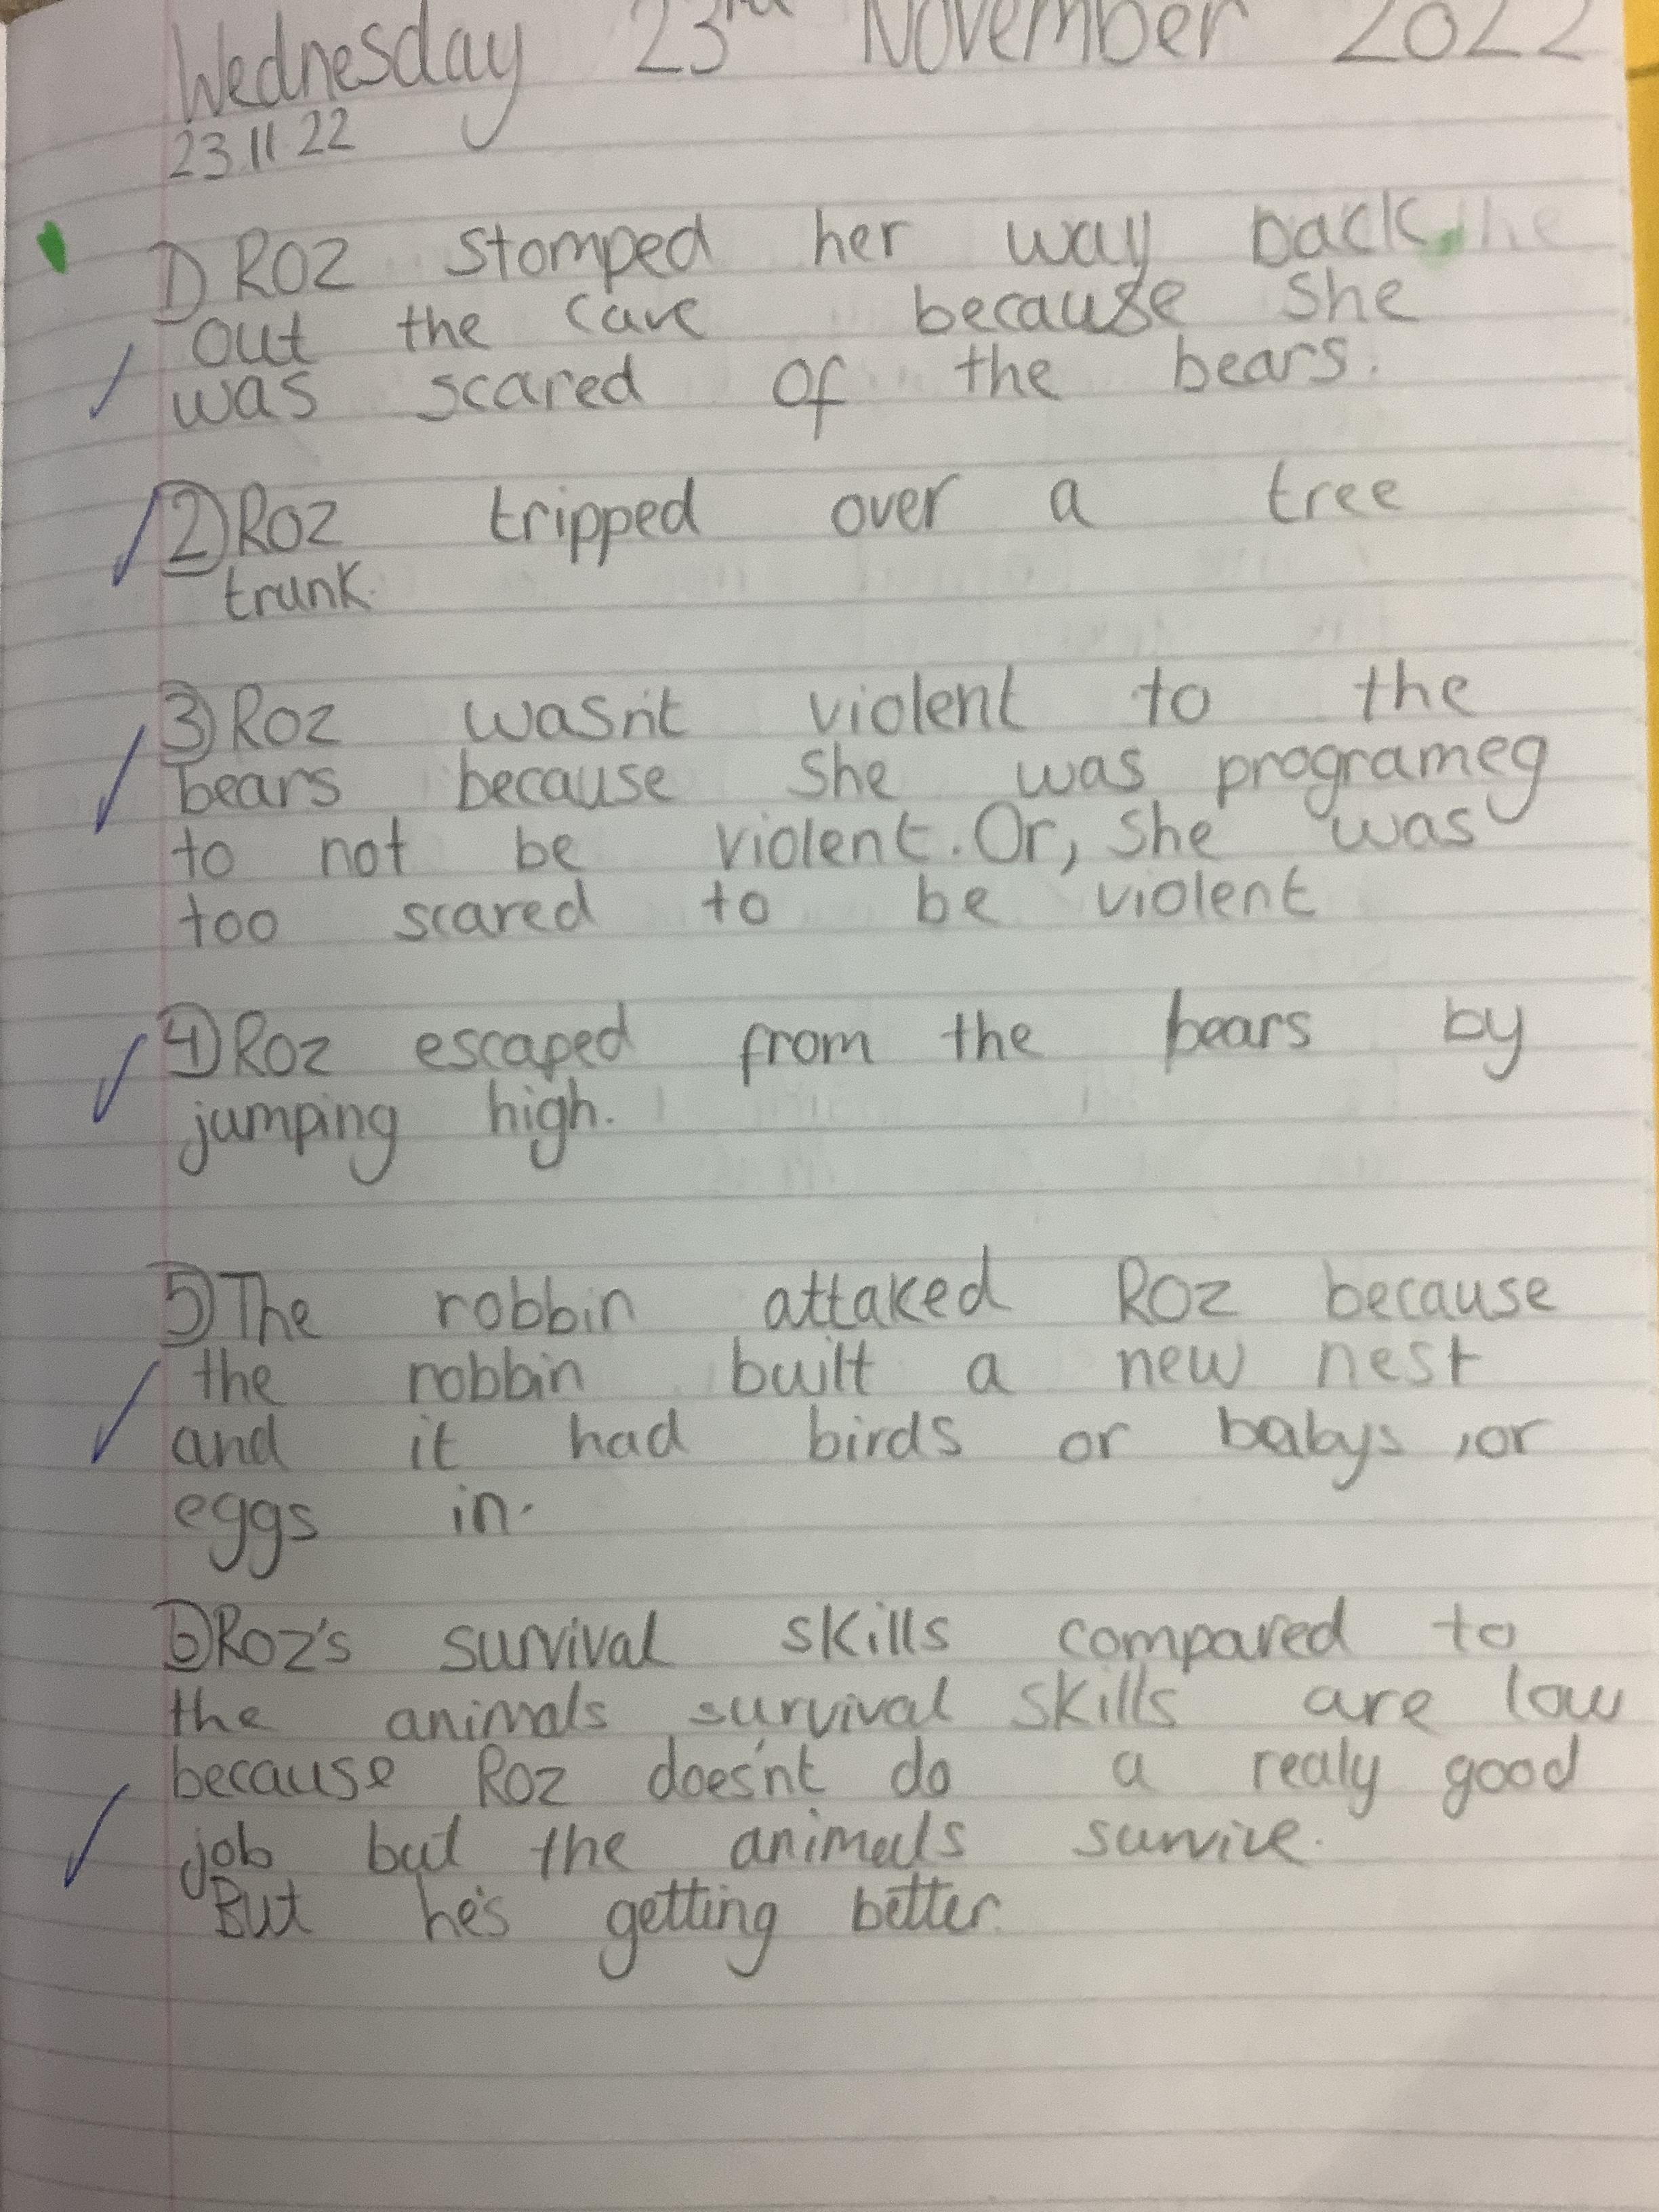 Wednesday 23rd November 2022
23.11.22
1) Roz stomped her way back
out the cave because she
was scared of the bears.
2) Roz tripped over a tree
trunk.
3) Roz wasn't violent to the
bears because she was programeg
to not be violent. Or, she was
too scared to be violent
4) Roz escaped from the bears by
jumping high.
5) The robbin attaked Roz because
the robbin built a new nest
and it had birds or babys, or
eggs in.
6) Roz's survival skills compared to
the animals survival skills are low
because Roz does'nt do a realy good
job but the animals survive.
But he's getting better.